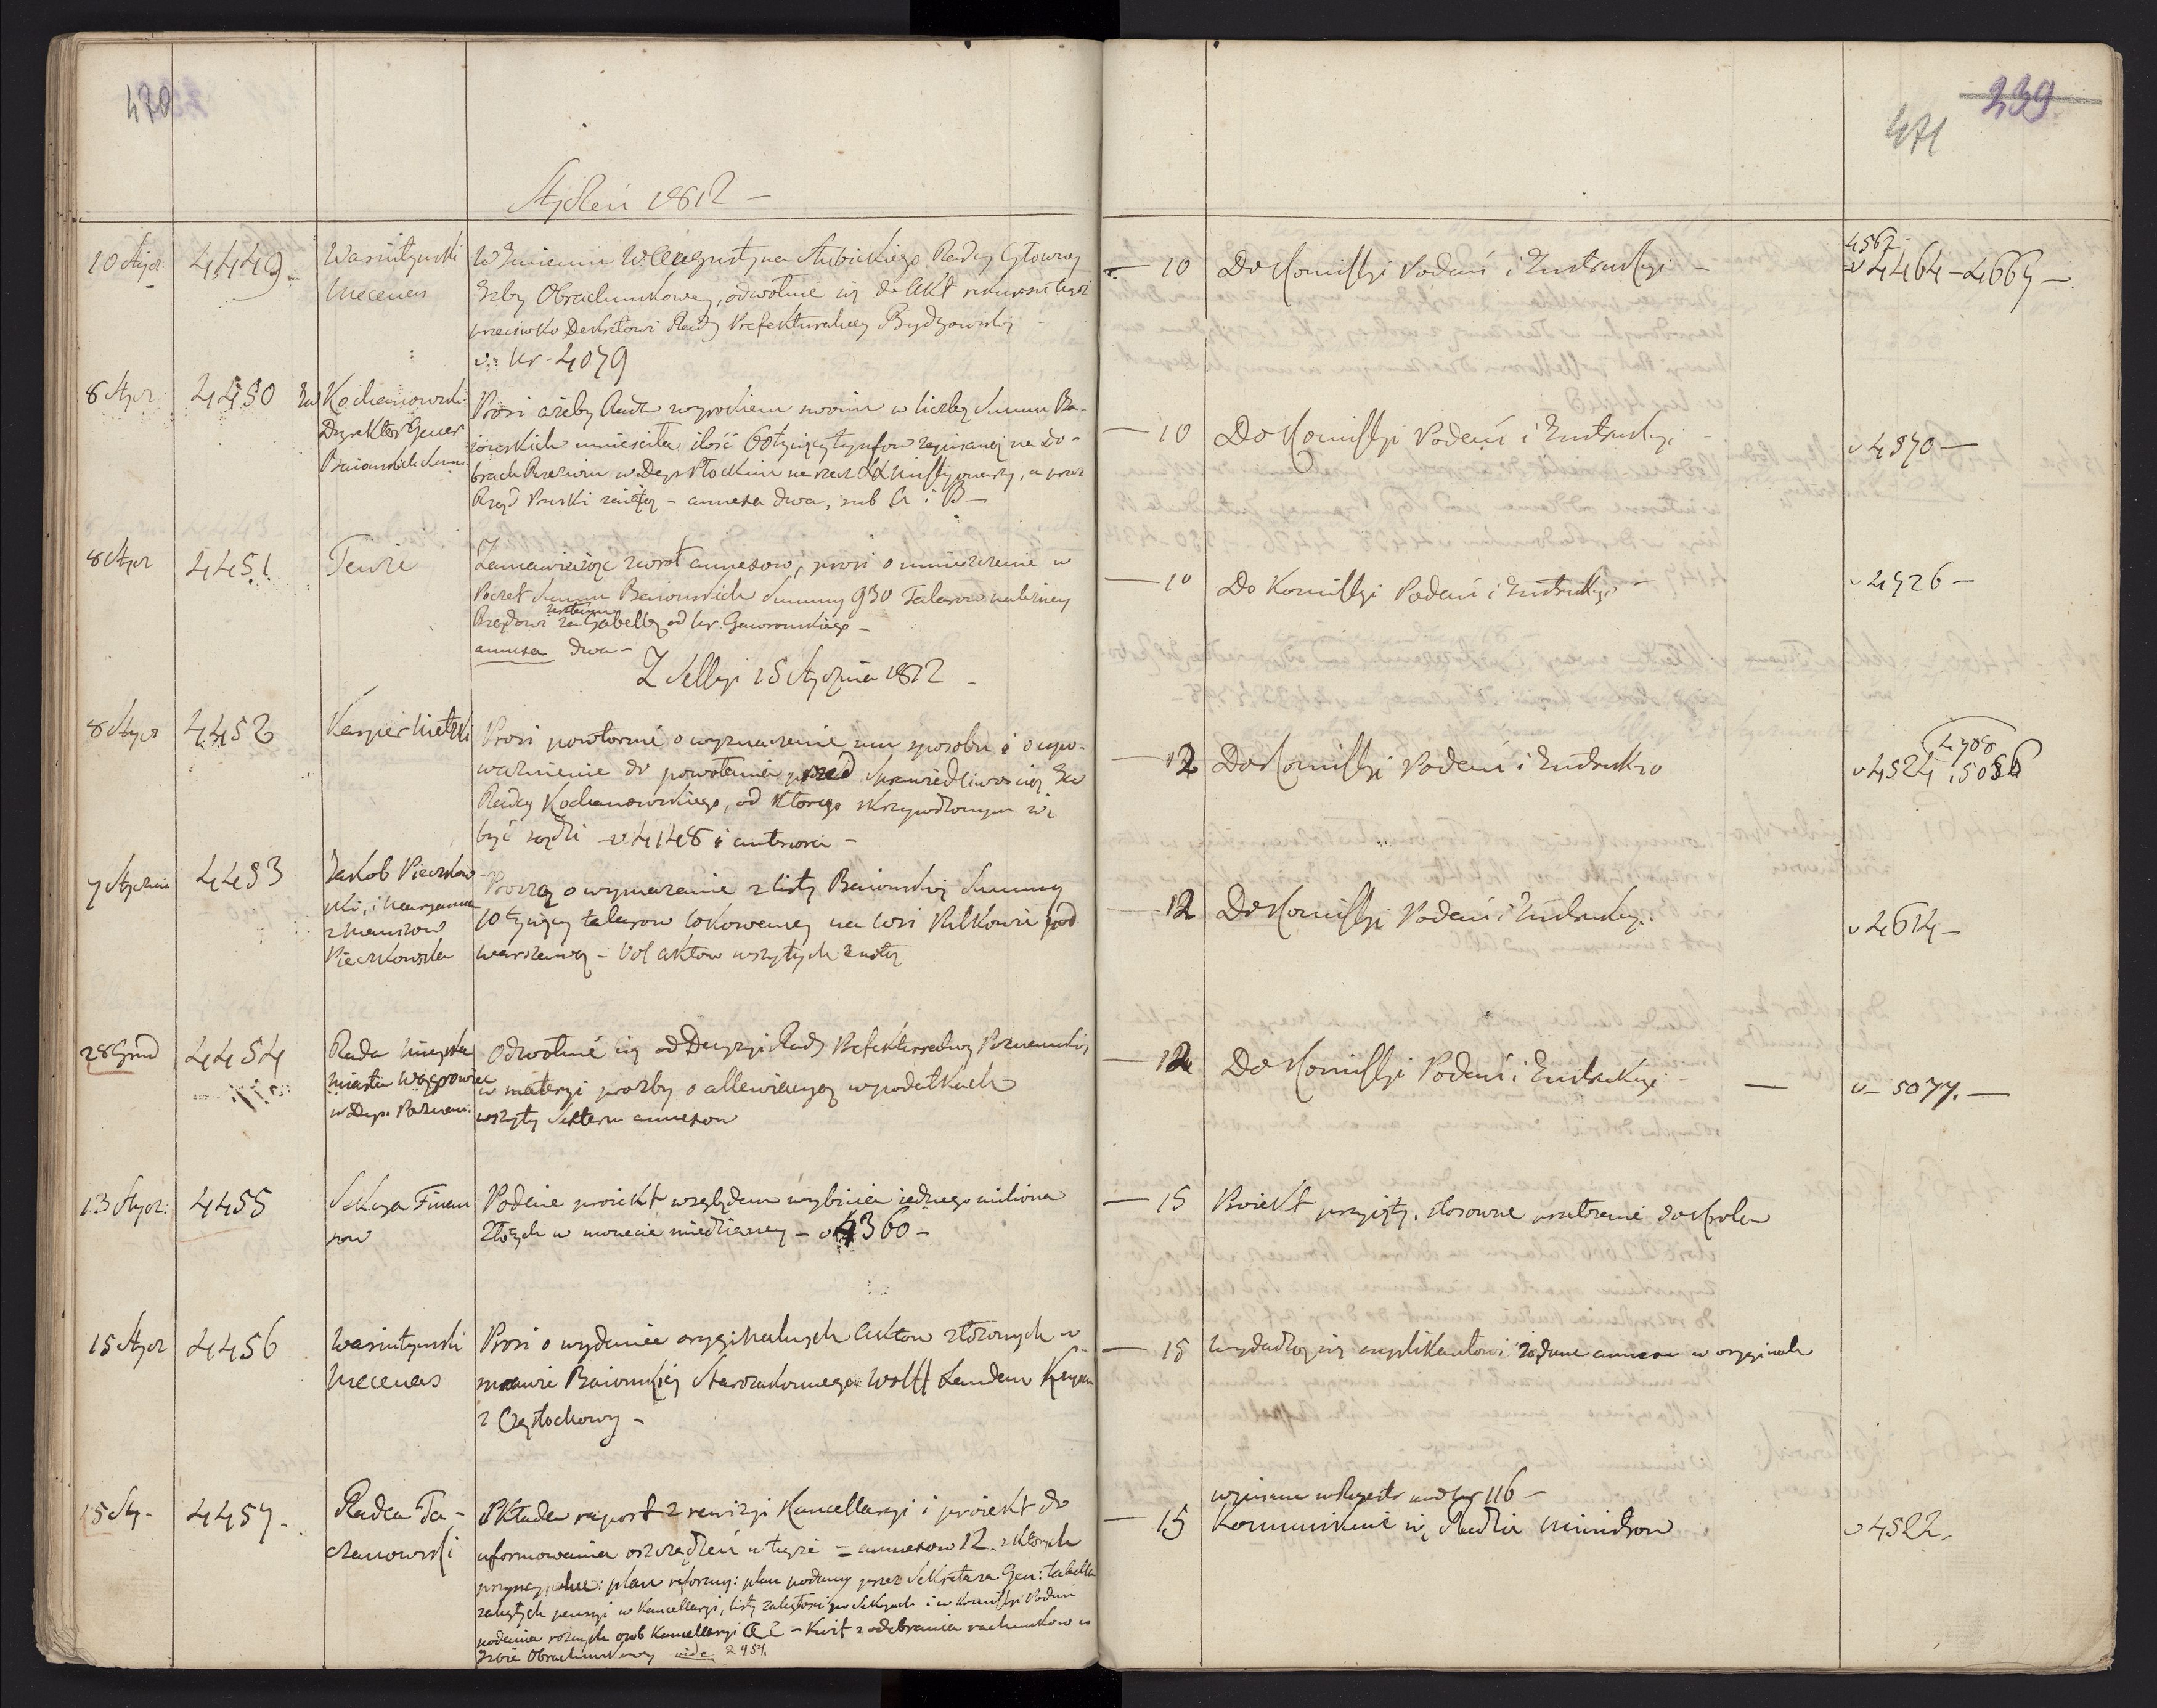 470
239
471
Styczeń 1812 –
10 Stycz
4449.
Wasiutyński
Mecenas
W Imieniu W. Augustyna Słubickiego Radcy Głowney
Izby Obrachunkowey, odwołuie się do Akt
przeciwko Dekretowi Rady Prefekturalney Bydgowskiej –
v. Nr. 4079
– 10
Do Kommissyi Podań i Instrukcyi –
4562
v 4464 – 4667 –
8 Stycz
4450
Kochanowski
Dyrektor Gener
Baionskich Summ
Prosi ażeby Rada wyrokiem swoim w liczbę Summ Ba-
ionskich umieściła ilość 6 tysięcy tynfow zapisaney na Do-
brach w Dep. Płockim na rzecz , a przez
Rząd Pruski zaięty – annexa dwa, sub A i B –
– 10
Do Komissyi Podań i Instrukcyi –
v 4570 –
8 Stycz
4451
Tenże
zwrot annexow, prosi o umieszczenie w
Poczet Summ Baionskich Summy 930 Talarow należney
Rządowi za Gabellę od Gawronskiego –
annexa dwa –
– 10
Do Komissyi Podań i Instrukcyi –
v 4726 –
Z Sessyi 15 Stycznia 1812 –
8 Stycz
4452
Kasper Mietzki
Prosi powtornie o wyznaczenie mu sposobu i o upo-
ważnienie do powołania przed Sprawiedliwością
Radcy Kochanowskiego, od ktorego skrzywdzonym się
być sądzi – v 4148 i anteriora –
– 12
Do Komissyi Podań i Instrukcyi
4708
v 4524 i 5056
7 Stycznia
4453
Jakob Pieczkow
ski, i Maryanna
z
Pieczkowska
Proszą o wymazanie z listy Baionskiey Summy
10 tysięcy talarow lokowaney na wsi Pulkowie pod
Warszawą – Vol aktow wszytych z notą
– 12
Do Komissyi Podań i Instrukcyi.
v 4614 –
28 Grud
4454
Rada Mieyska
Miasta Wągrowiec
w Dep. Poznań:
Odwołuie się od Decyzyi Rady Prefekturalney Poznanskiey
w materyi prozby o allewiacyą w podatkach
wszyty annexow
– 12
Do Komissyi Podań i Instrukcyi –
v – 5077. –
13 Stycz:
4455
Sekcya Finan
sow
Podaie proiekt względem wybicia iednego miliona
Złotych w monecie miedzianey – v 4360 –
– 15
Proiekt przyięty, stosowne przełożenie do Krola
15 Stycz
4456
Wasiutyński
Mecenas
Prosi o wydanie oryginalnych aktow złożonych w
sprawie Baionskiey Starozakonnego Wolff Landau Kupca
z Częstochowy –
– 15
wydadzą się supplikantowi żądane annexa w oryginale
15 Sty –
4457 –
Radca Ta-
czanowski
Składa raport z rewizyi Kancellaryi i proiekt do
uformowania oszczędzeń w teyże = annexow 12. z ktorych
plan reformy: plan podany przez Sekretarza Gen: tabella
zaległych pensyi w Kancellaryi, listy zaległości po Sekcyach i w Komissyi Podań
podania rożnych osob Kancellaryi – Kwit z odebrania rachunkow w
Izbie Obrachunkowey vide 2454.
wpisane w Regestr pod Nr 116 –
– 15
Kommunikuie się Radzie Ministrow
v 4522.